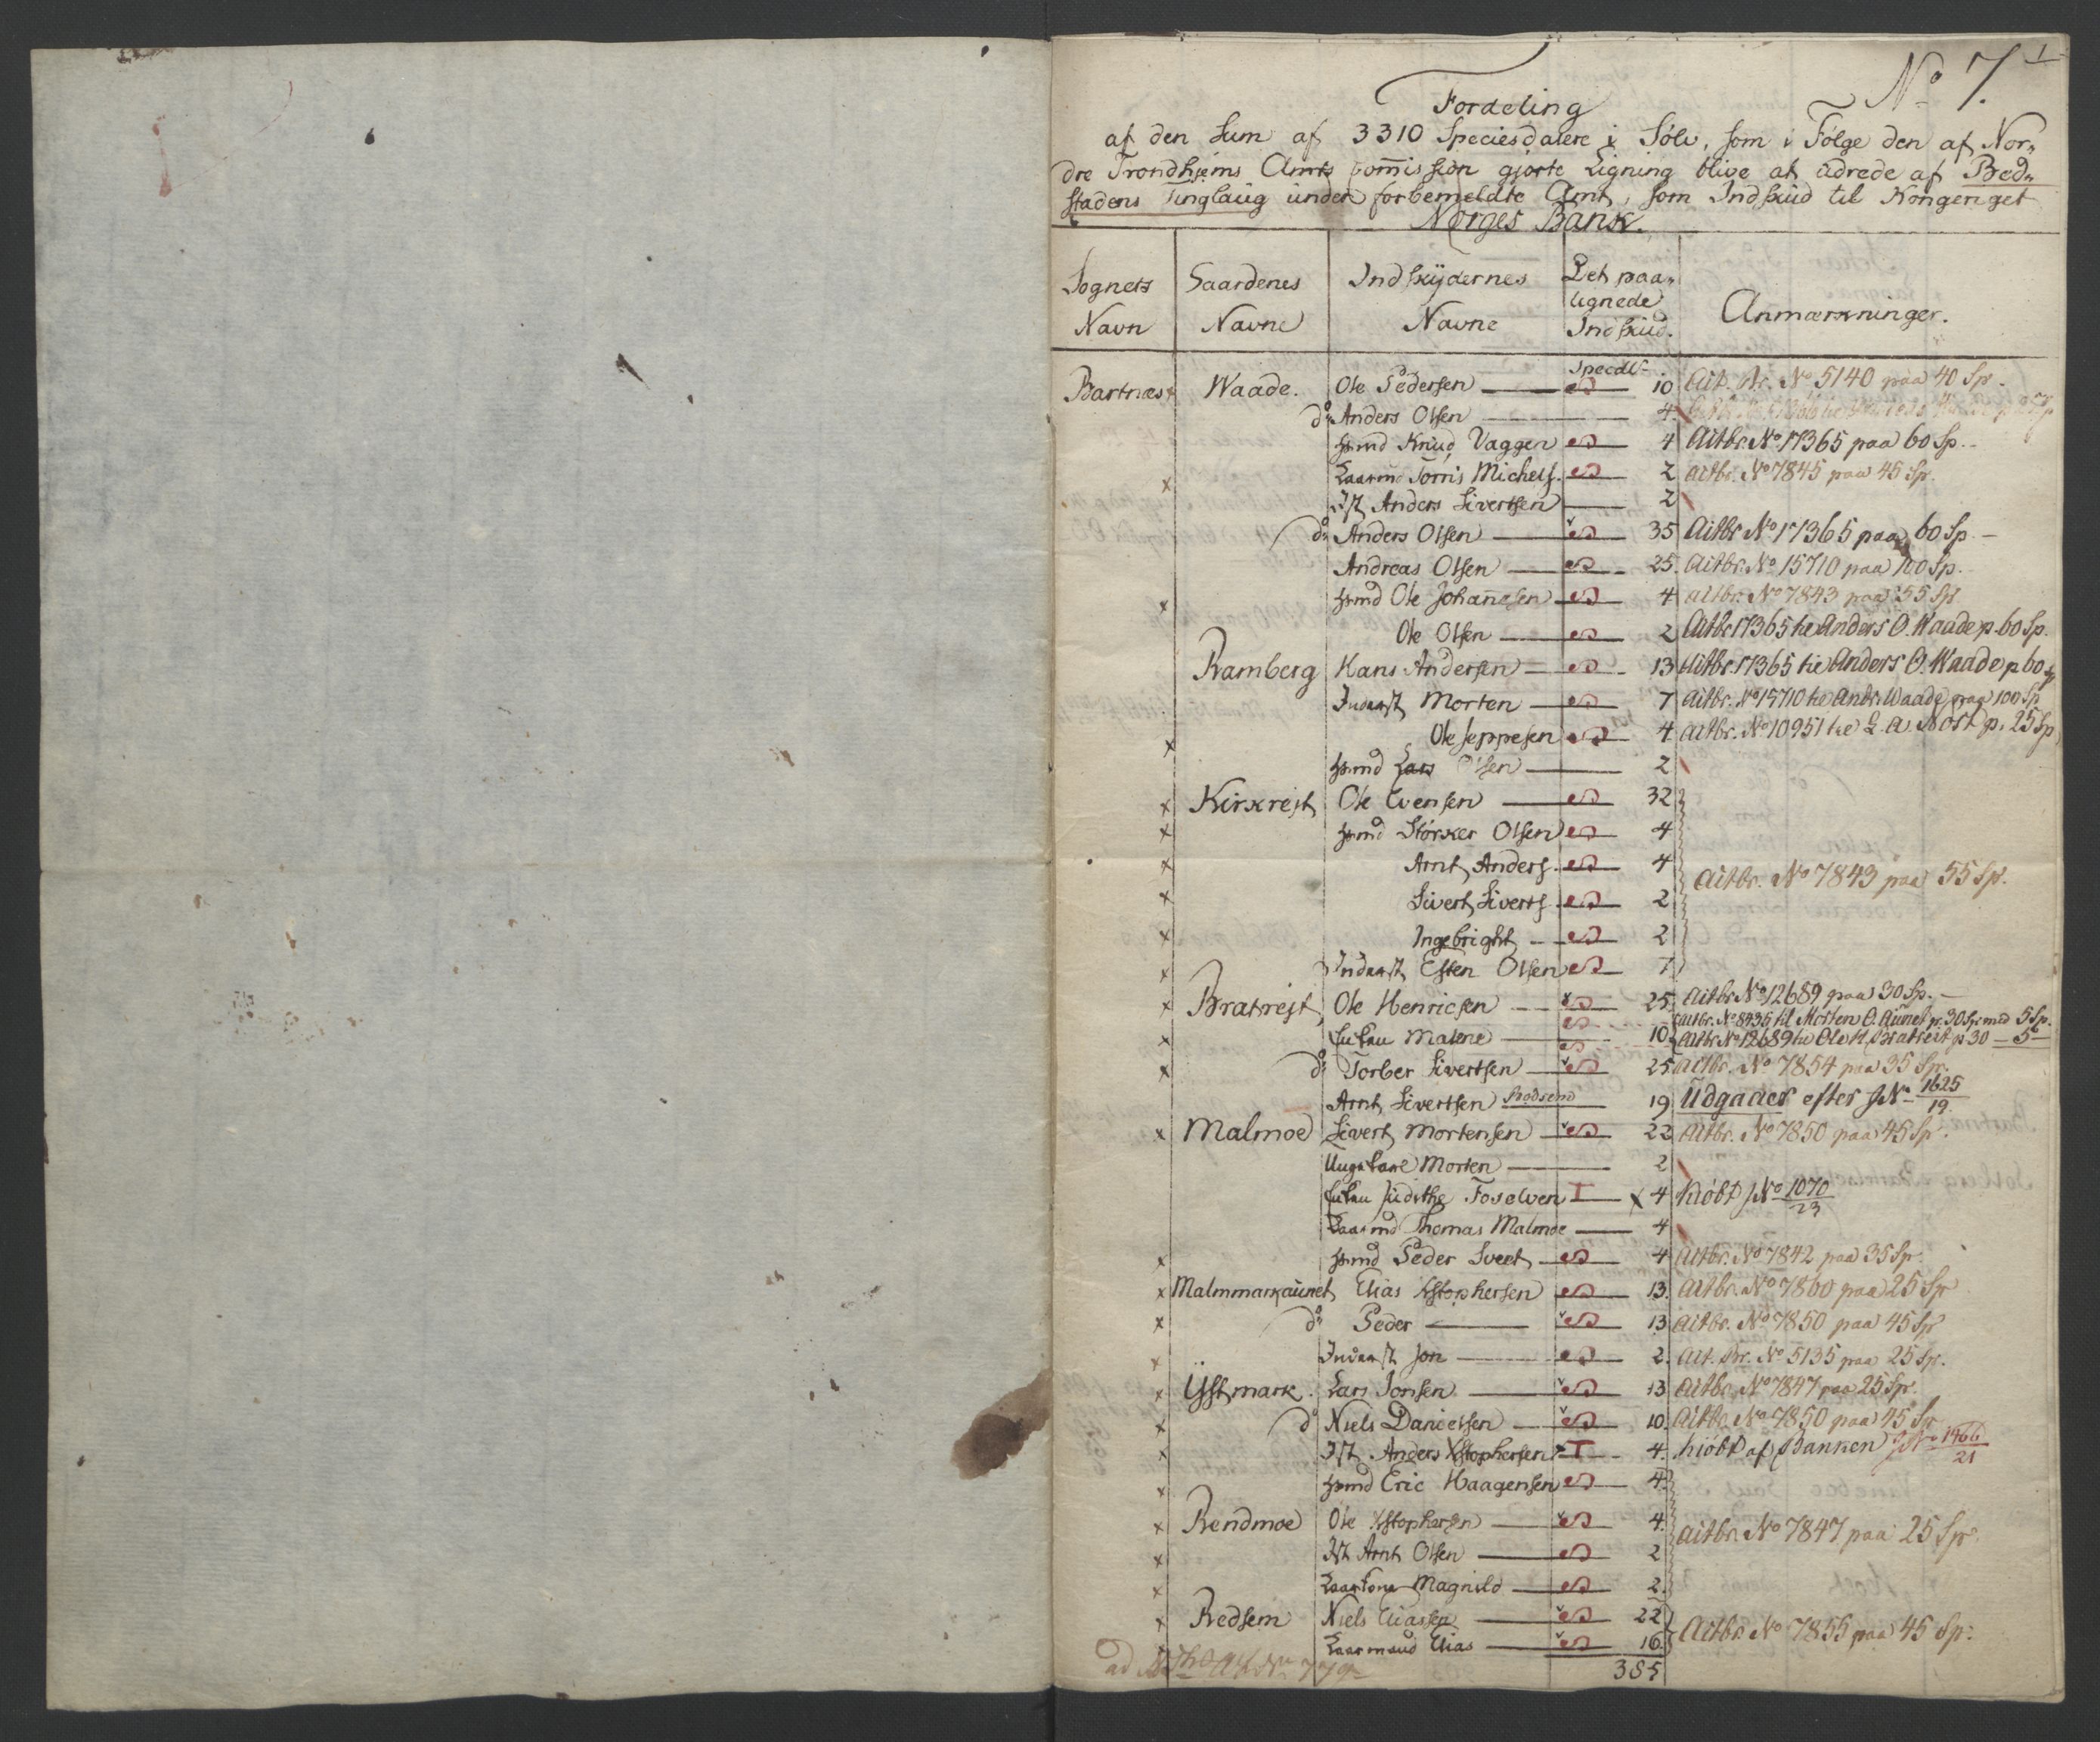 No 7. 1
Fordeling
af den Sum af 3310 Speciesdalere i Sølv, som i Følge den af Nor„
dre Trondhjems Amts Commission gjorte Ligning blive at udrede af Bed„
stadens Tinglaug under forbemeldte Amt, som Indskud til Kongeriget
Norges Bank.
Sognets Navn | Gaardenes Navne | Indskydernes Navne | Det paa„lignede Indskud. | Anmærkninger.
Specdlr
Bartnæs Waade. Ole Pedersen 10 Actbr. No 5140 paa 40 Sp.
do Anders Olsen 4
Hmd Knud Vaggen 4 Actbr. No 17365 paa 60 Sp.
x Laarmd Torris Michels. 2 Actbr. No 7845 paa 45 Sp.
Ist Anders Sivertsen 2
do Anders Olsen 35 Actbr No 17365 paa 60 Sp.
Andreas Olsen 25. Actbr. No 15710 paa 100 Sp.
x Hmd Ole Johannesen 4 Actbr. No 7843 paa 55 Sp
Ole Olsen 2 Actbr 17365 til Anders O. Waade p. 60 Sp.
Ramberg Hans Andersen 13 Actbr. 17365 til Anders O. Waade p 60 Sp
Inderst Morten 7 Actbr. No 15710 til Andr. Waade paa 100 Sp
x Ole Jeppesen 4 Actbr. No 10951 til L. A. Nost p. 25 Sp
Hmd Lars Olsen 2
x Kirkrejt Ole Evensen 32
x Hmd Størker Olsen 4
x Arnt Anders. 4 Actbr. No 7843 paa 55 Sp.
x Sivert Siverts. 2
x Ingebright 2
x Inderst Esten Olsen 7
x Bratrejt Ole Henricsen 25. Actbr No 12689 paa 30 Sp.
Actbr. No 8436 til Morten O. Aunet p. 30 Sp. med 5 Sp.
x Enken Malene 10 Actbr No 12689 til Ole H. Bratreit p 30 – 5 –
x do Torber Sivertsen 25 Actbr. No 7854 paa 35 Sp.
Arnt Sivertsen Rodsem 19 Udgaaer efter JNo 1625/19.
x Malmoe Sivert Mortensen 22 Actbr. No 7850 paa 45 Sp.
Ungkarl Morten 2
Enken Judithe Foselven x 4 Kiöbt JNo 1070/23
Laarmd Thomas Malmoe 4
x Hmd Peder Sveet 4 Actbr. No 7842 paa 35 Sp.
x Malmmarkaunet Elias Xstophersen 13. Actbr. No 7860 paa 25 Sp
x do Peder 13 Actbr. No 7850 paa 45 Sp
x Inderst Jon 2. Act. Br. No 5135 paa 25 Sp.
x Ystmark. Lars Jonsen 13 Actbr. No 7847 paa 25 Sp.
x do Niels Danielsen 10. Actbr. No 7850 paa 45 Sp
x Ist Anders Xstophersen 4. Kiöbt af Banken JNo 1466/21
x Hmd Eric Haagensen 4.
x Rendmoe Ole Xstophersen 4. Actbr. No 7847 paa 25 Sp.
x Ist Arnt Olsen 2
x Laarkone Magnild 2.
x Redsem Niels Eliassen 22
x Laarmand Elias 16. Actbr. No 7855 paa 45 Sp.
385